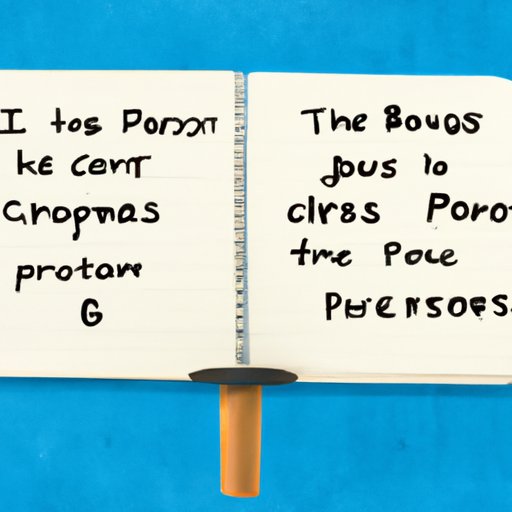 I tos Porpxr
ke cenr
Gropmas
protaw
G
The Bouos
jous lo
clrss Porot
tre Poce
PHensoes.